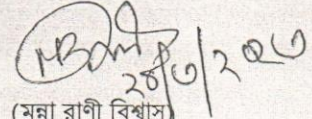 ২৪/৩/২০২৩
(মন্না রাণী বিশ্বাস)